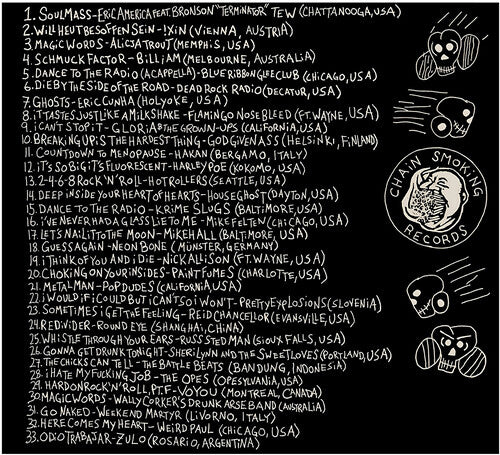 1. SOULMASS-ERIC AMERICA FEAT. BRONSON "TERMINATOR" TEW (CHATTANOOGA, USA)
2. WILL HEUT BESOFFEN SEIN - !XIN (VIENNA, AUSTRIA)
3. MAGIC WORDS - ALICJA TROUT (MEMPHIS, USA)
4. SCHMUCK FACTOR - BILLIAM (MELBOURNE, AUSTRALIA)
5. DANCE TO THE RADIO (ACAPELLA) - BLUE RIBBON GLEE CLUB (CHICAGO, USA)
6. DIE BY THE SIDE OF THE ROAD - DEAD ROCK RADIO (DECATUR, USA)
7. GHOSTS - ERIC CUNHA (HOLYOKE, USA)
8. IT TASTES JUST LIKE A MILKSHAKE - FLAMINGO NOSEBLEED (FT. WAYNE, USA)
9. I CAN'T STOP IT - GLORIA & THE GROWN-UPS (CALIFORNIA, USA)
10. BREAKING UP IS THE HARDEST THING - GOD GIVEN ASS (HELSINKI, FINLAND)
11. COUNTDOWN TO MENOPAUSE - HAKAN (BERGAMO, ITALY)
12. IT'S SO BIG IT'S FLUORESCENT - HARLEY POE (KOKOMO, USA)
13. 2-4-6-8 ROCK 'N' ROLL - HOT ROLLERS (SEATTLE, USA)
14. DEEP INSIDE YOUR HEART OF HEARTS - HOUSEGHOST (DAYTON, USA)
15. DANCE TO THE RADIO - KRIME SLUGS (BALTIMORE, USA)
16. I'VE NEVER HAD A GLASS LIE TO ME - MIKE FELTEN (CHICAGO, USA)
17. LET'S NAIL IT TO THE MOON - MIKE HALL (BALTIMORE, USA)
18. GUESS AGAIN - NEON BONE (MÜNSTER, GERMANY)
19. I THINK OF YOU AND I DIE - NICK ALLISON (FT. WAYNE, USA)
20. CHOKING ON YOUR INSIDES - PAINT FUMES (CHARLOTTE, USA)
21. METAL MAN - POP DUDES (CALIFORNIA, USA)
22. I WOULD IF I COULD BUT I CAN'T SO I WON'T - PRETTY EXPLOSIONS (SLOVENIA)
23. SOMETIMES I GET THE FEELING - REID CHANCELLOR (EVANSVILLE, USA)
24. REDIVIDER - ROUND EYE (SHANGHAI, CHINA)
25. WHISTLE THROUGH YOUR EARS - RUSS STEDMAN (SIOUX FALLS, USA)
26. GONNA GET DRUNK TONIGHT - SHERI LYNN AND THE SWEET LOVES (PORTLAND, USA)
27. THE CHICKS CAN TELL - THE BATTLE BEATS (BANDUNG, INDONESIA)
28. I HATE MY FUCKING JOB - THE OPES (OPESYLVANIA, USA)
29. HARD ON ROCK 'N' ROLL, PT.F - VO YOU (MONTREAL, CANADA)
30. MAGIC WORDS - WALLY CORKER'S DRUNK ARSE BAND (AUSTRALIA)
31. GO NAKED - WEEKEND MARTYR (LIVORNO, ITALY)
32. HERE COMES MY HEART - WEIRD PAUL (CHICAGO, USA)
33. ODIO TRABAJAR - ZULO (ROSARIO, ARGENTINA)
CHAIN SMOKING RECORDS